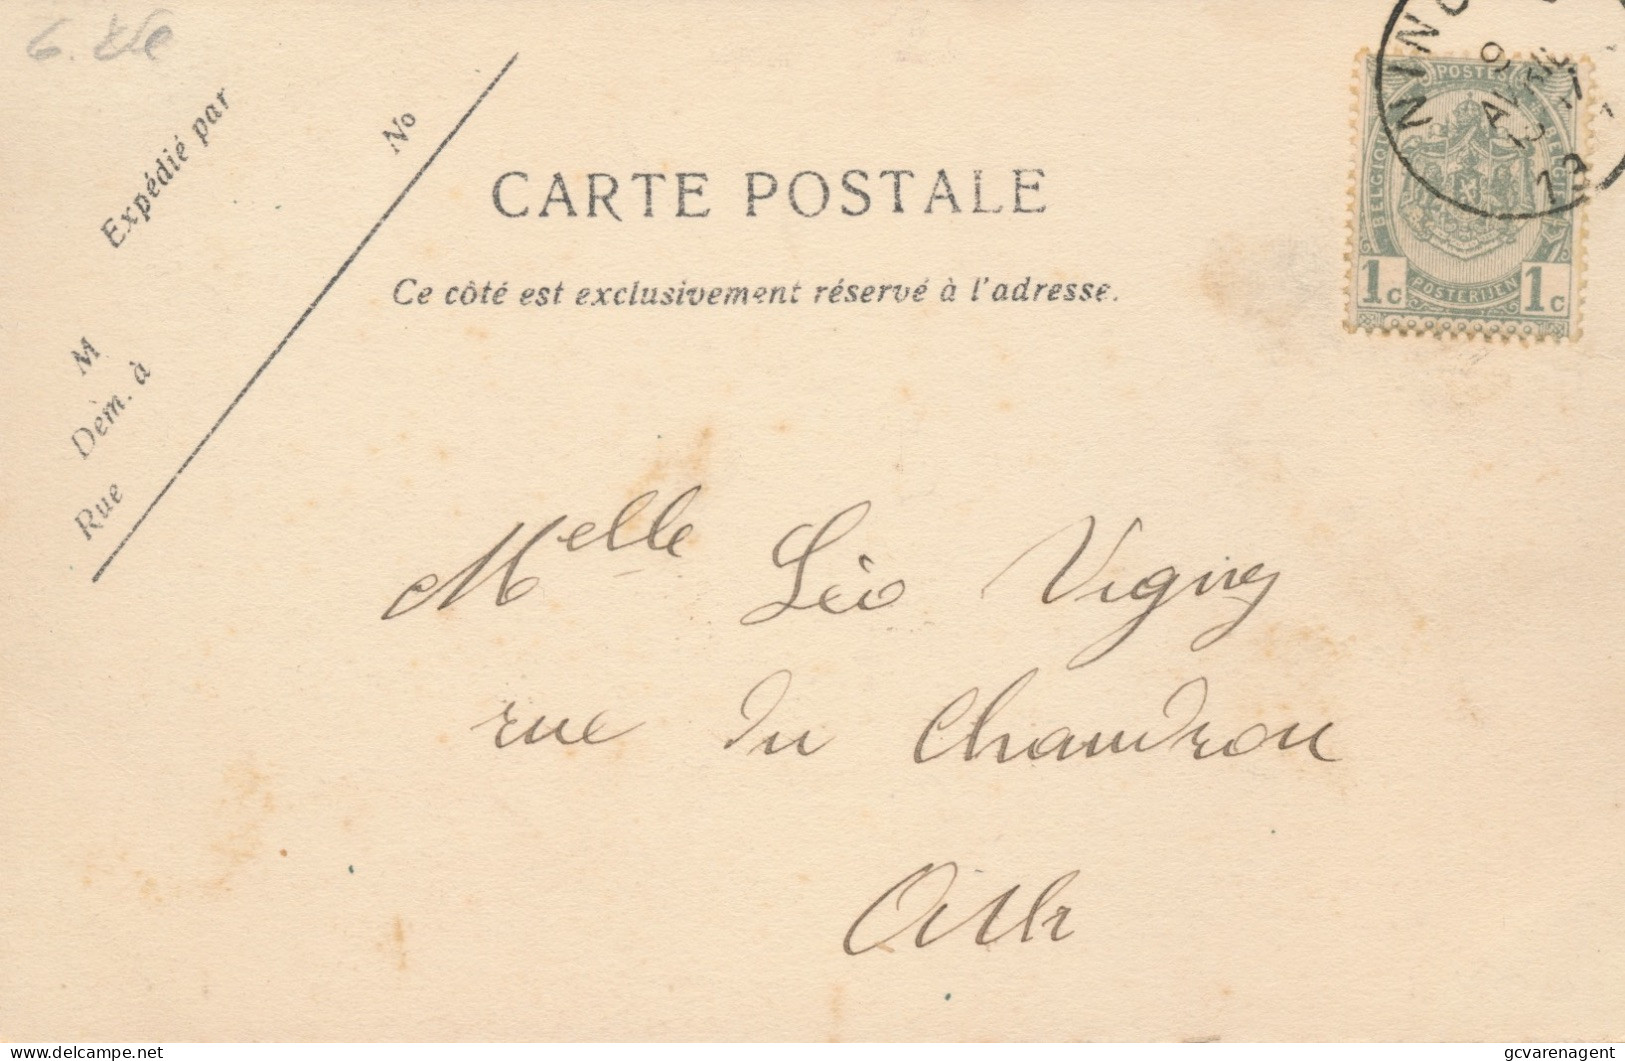 Expédié par
No
CARTE POSTALE
Ce côté est exclusivement réservé à l'adresse.
M
Dem. à
Rue
POSTES
BELGIQUE
BELGIË
1c POSTERIJEN 1c
NINO
9
AVRIL
Melle Léo
rue du Chaudron
Ath
delcampe.net
gcvarenagent